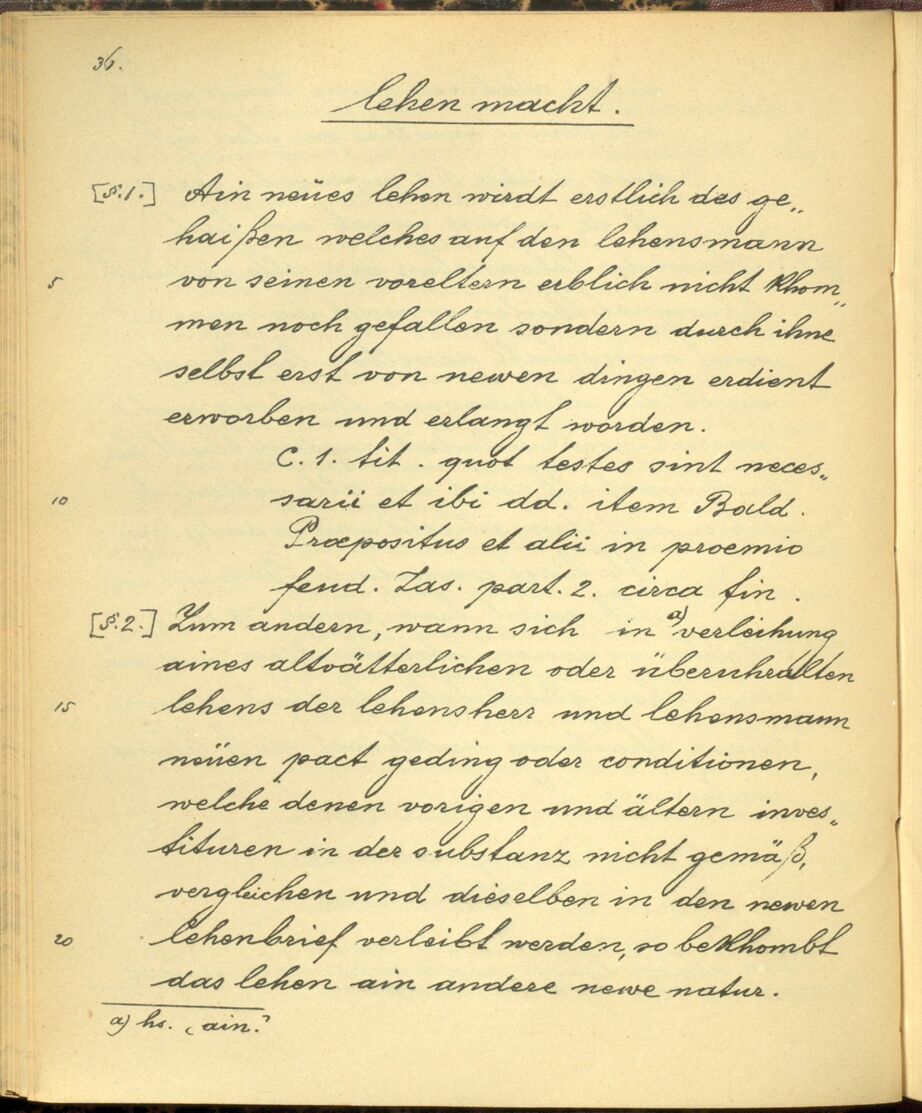 36.
lehen macht.
[§.1.] Ain neües lehen wirdt erstlich das ge„
haißen welches auf den lehensmann
5 von seinen voreltern erblich nicht khom„
men noch gefallen sondern durch ihne
selbst erst von newen dingen erdient
erworben und erlangt worden.
C. 1. tit. quot testes sint neces„
10 sarii et ibi dd. item Bald.
Præpositus et alii in proemio
feud. Zas. part. 2. circa fin.
[§.2.] Zum andern, wann sich in a) verleihung
aines altvätterlichen oder überuhralten
15 lehens der lehensherr und lehensmann
neüen pact geding oder conditionen,
welche denen vorigen und ältern inves„
tituren in der substanz nicht gemäß,
vergleichen und dieselben in den newen
20 lehenbrief verleibt werden, so bekhombt
das lehen ain andere newe natur.
a) hs. „ain."